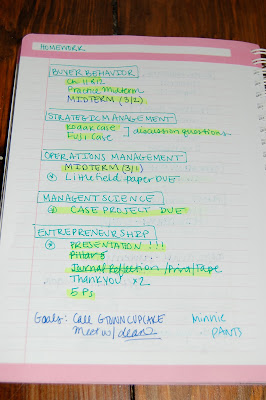 HOMEWORK
BUYER BEHAVIOR
Ch 11 & 12
Practice Midterm
MIDTERM (3/2)
STRATEGIC MANAGEMENT
Kodak Case ] discussion questions
Fuji Case
OPERATIONS MANAGEMENT
MIDTERM (3/1)
Littlefield paper DUE
MANAGENT SCIENCE
CASE PROJECT DUE
ENTREPRENEURSHIP
PRESENTATION !!!
Pillar 5
Journal Reflection / Print / Tape
Thank you x2
5 Ps
Goals: Call GTOWN CUPCAKE
Meet w/ deans
Minnie
PANTS